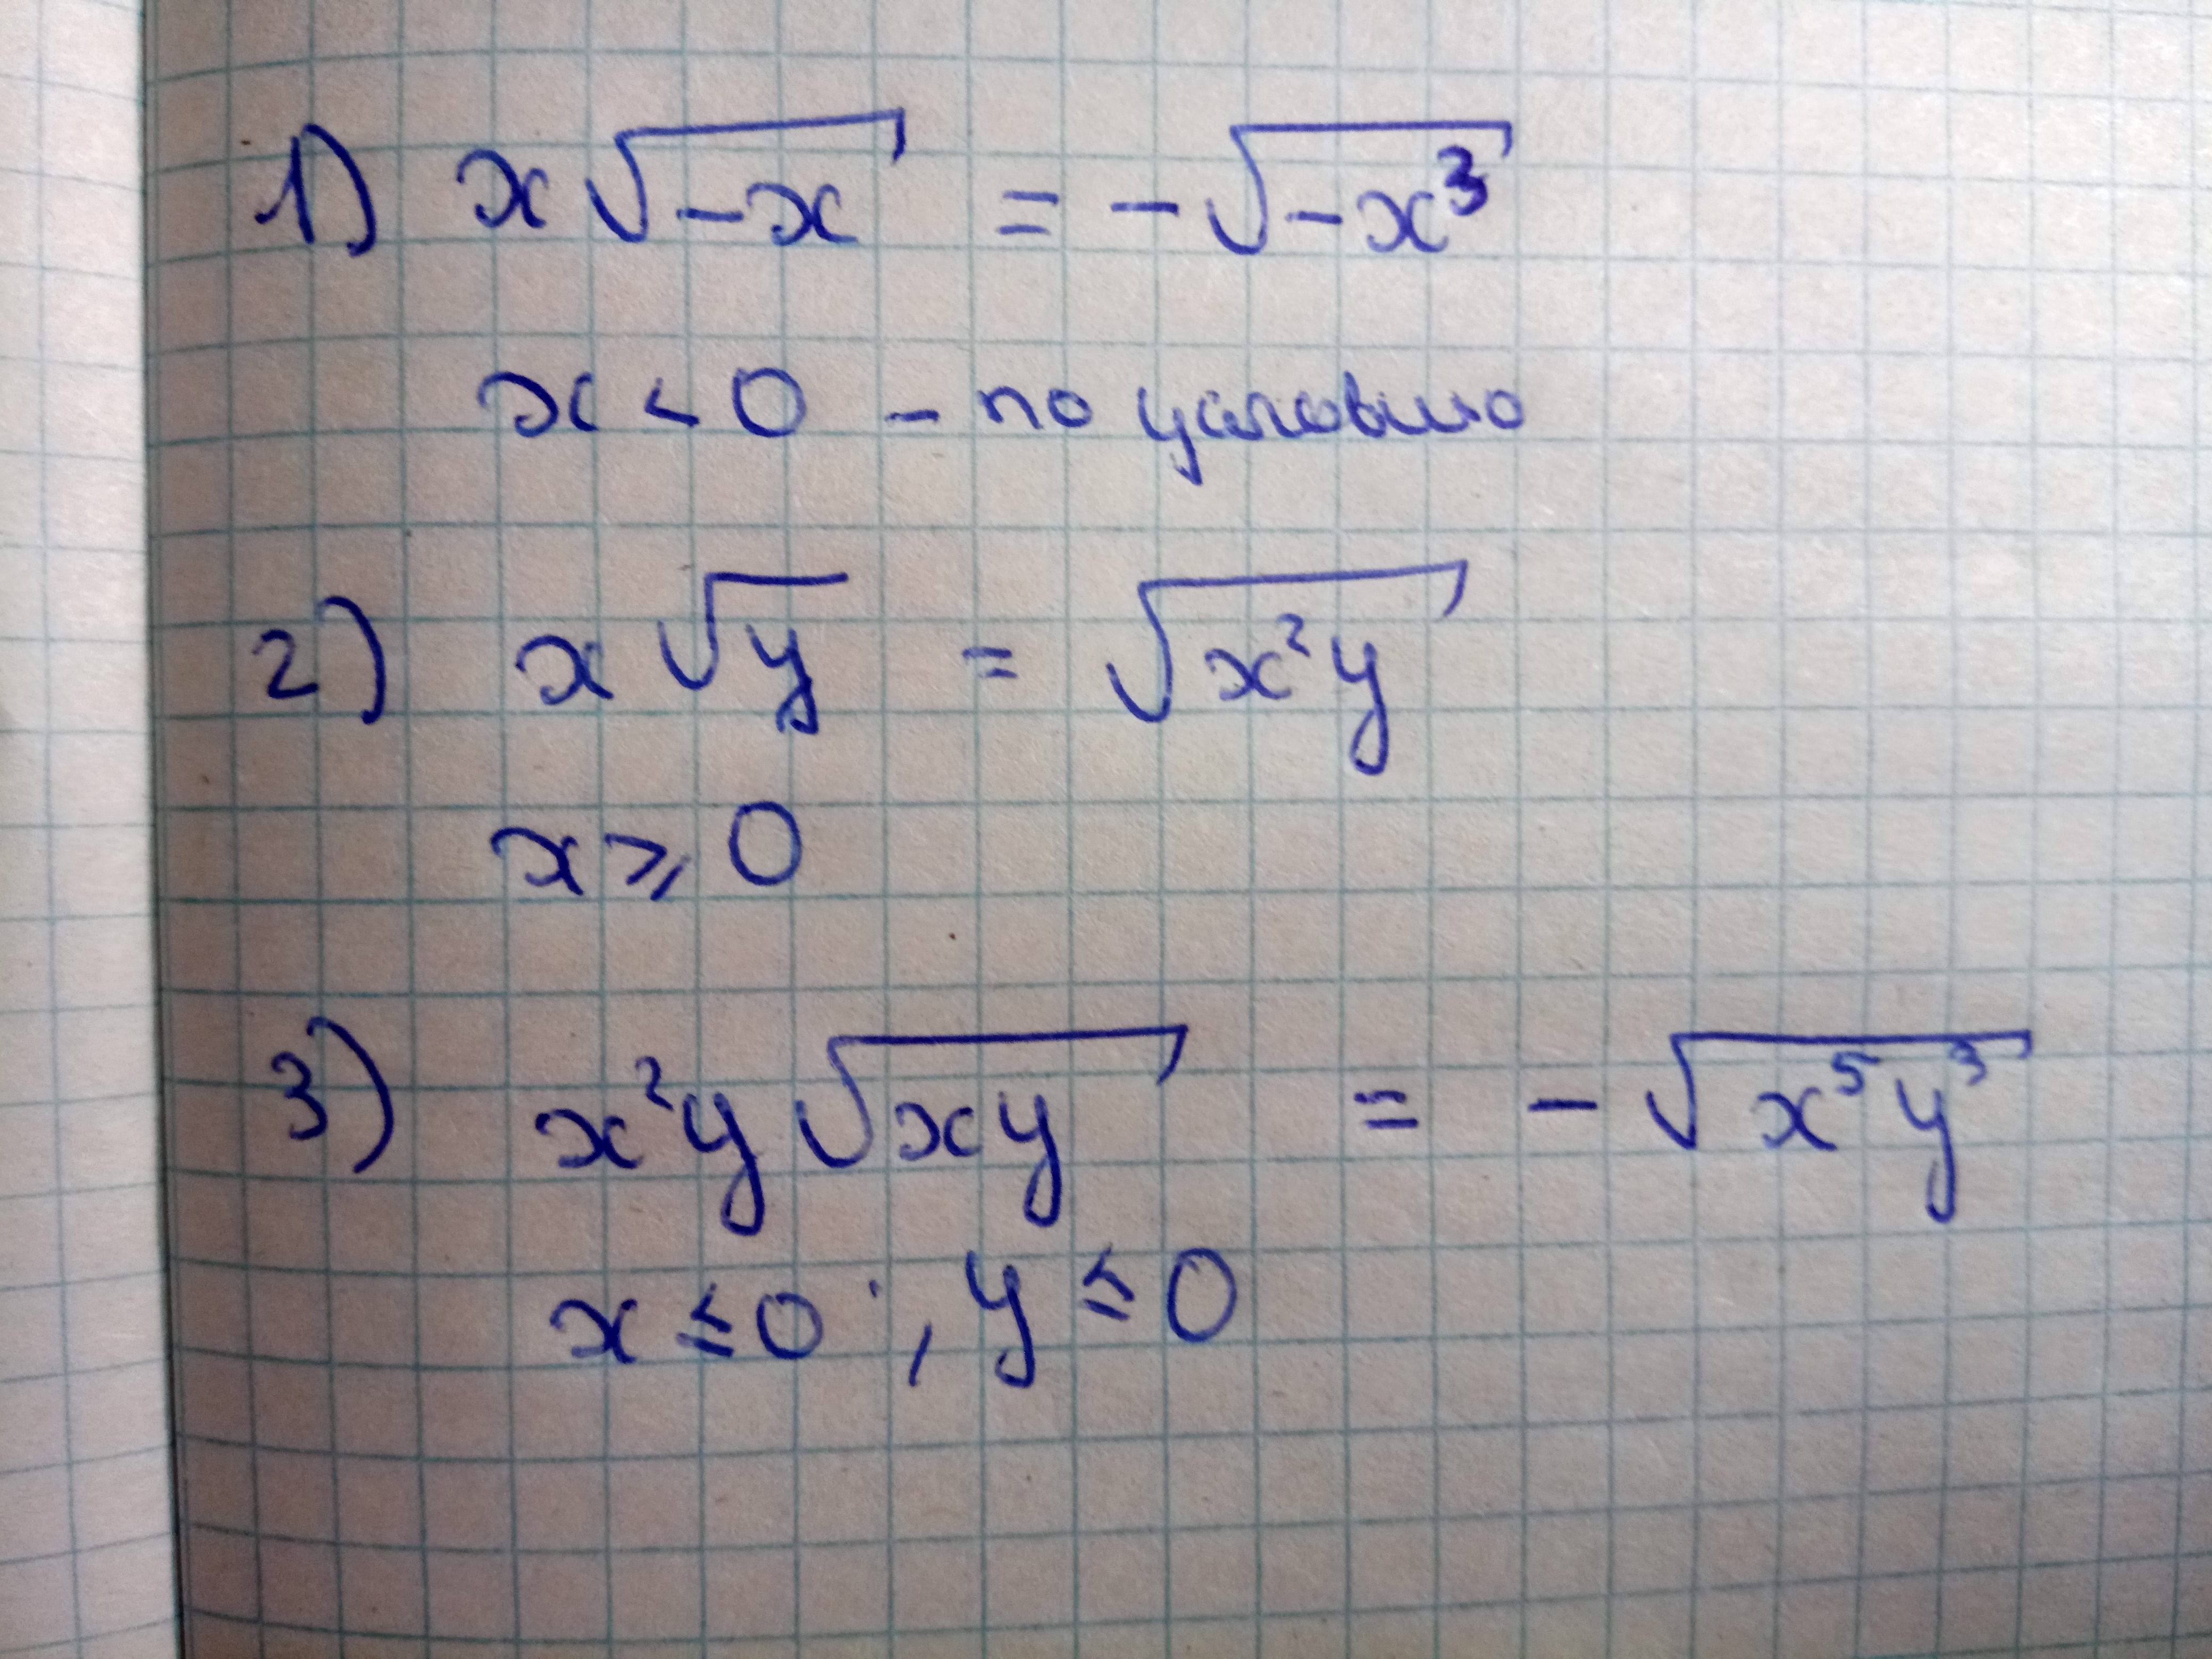 1) x√(-x) = -√(-x³)
x < 0 - по условию
2) x√y = √(x²y)
x ⩾ 0
3) x²y√(xy) = -√(x⁵y³)
x ≤ 0 , y ≤ 0